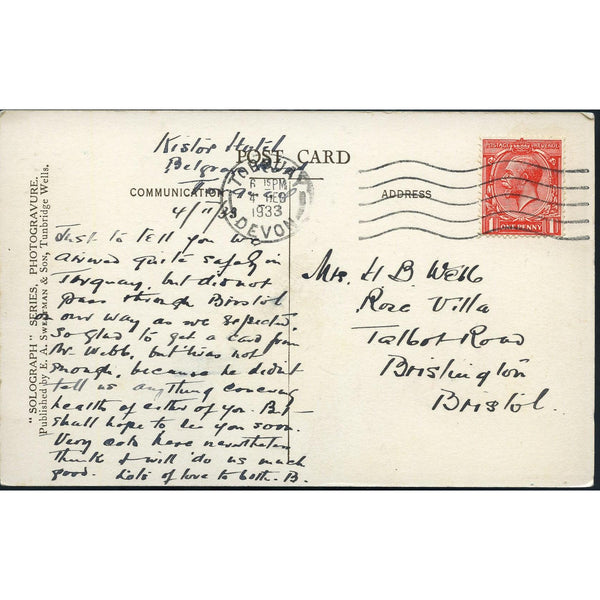 "SOLOGRAPH" SERIES, PHOTOGRAVURE.
Published by E. A. SWEETMAN & SON, Tunbridge Wells.
POST CARD
COMMUNICATION
ADDRESS
Kistor Hotel
Belgrave
4/11/33
Just to tell you we
arrived quite safely in
Torquay, but did not
pass through Bristol
on our way as we expected.
So glad to get a card from
Mr. Webb, but 'twas not
enough, because he didnt
tell us anything concerng
health of either of you. But
shall hope to see you soon.
Very cold here nevertheless
think it will do us much
good. Lots of love to both. B.
TORQUAY
6 15PM
4 DEC
1933
DEVON
POSTAGE REVENUE
1 ONE PENNY 1
Mrs H B Webb
Rose Villa
Talbot Road
Brislington
Bristol.